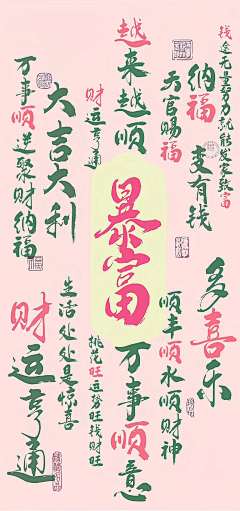 钱途无量努力就能发家致富
纳福
天官赐福
变有钱
越来越顺
财运亨通
大吉大利
万事顺逆聚财纳福
暴富
多喜乐
顺丰顺水顺财神
万事顺意
桃花旺运势旺财旺
生活处处是惊喜
财运亨通